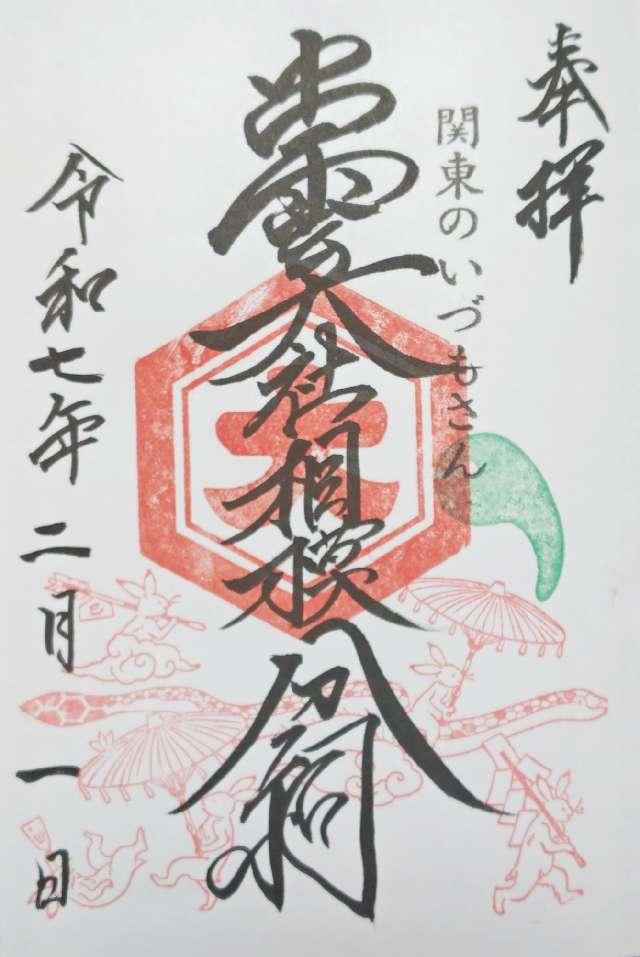 奉拝
関東のいづもさん
出雲大社相模分祠
令和七年二月一日